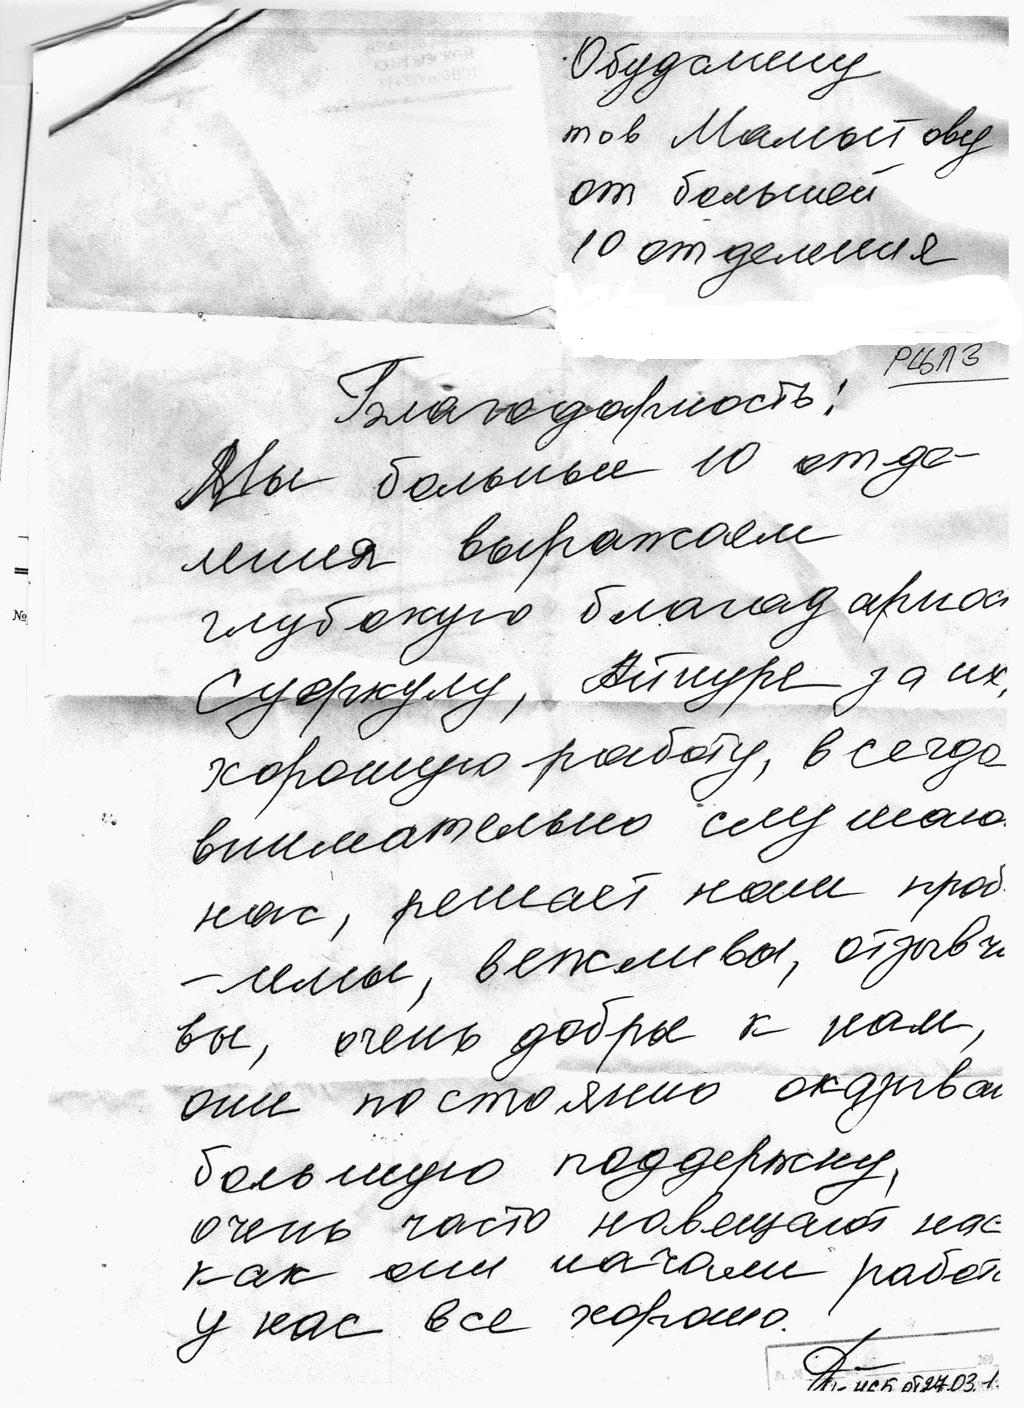 Обудсмену
тов Мамытову
от больной
10 отделения
РЦПЗ
Благодарность!
Мы больные 10 отде-
ления выражаем
глубокую благадарнос
Суркулу, Айнуре за их,
хорошую работу, всегда
внимательно слушаю
нас, решает наши проб
-лемы, вежливы, отзывчи
вы, очень добры к нам,
они постоянно оказываю
большую поддержку,
очень часто навещают нас
как они начали работ
у нас все хорошо.
от 27.03.1
№